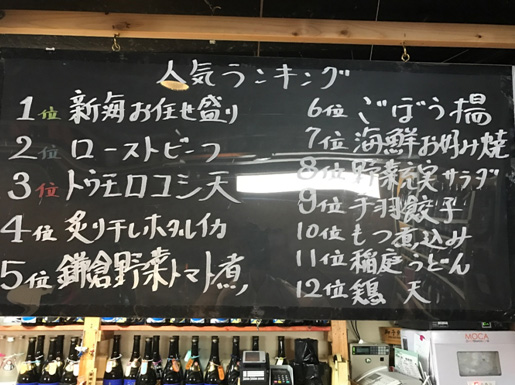 人気ランキング
1位 新海お任せ盛り
2位 ローストビーフ
3位 トウモロコシ天
4位 炙り干しホタルイカ
5位 鎌倉野菜トマト煮
6位 ごぼう揚
7位 海鮮お好み焼
8位 野菜充実サラダ
9位 手羽餃子
10位 もつ煮込み
11位 稲庭うどん
12位 鶏天
MOCA